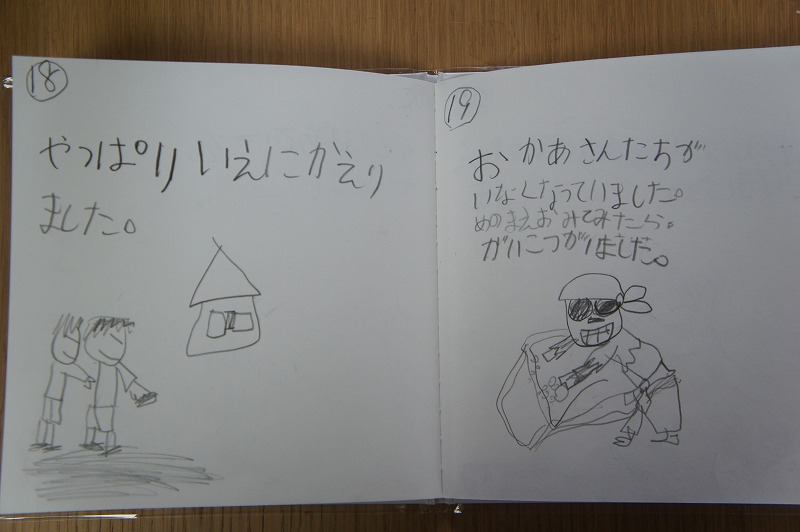 18
やっぱり いえにかえり
ました。
19
おかあさんたちが
いなくなっていました。
めのまえおみてみたら。
がいこつがいました。